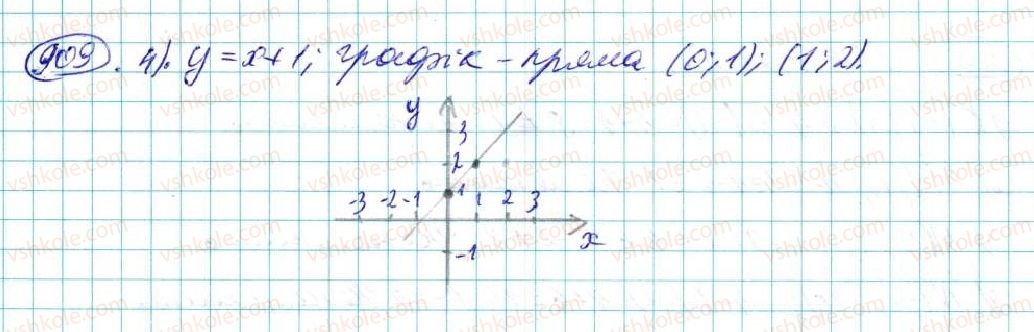 909. 4). y = x+1; графік - пряма (0; 1); (1; 2).
y
3
2
1
-3 -2 -1 1 2 3
x
-1